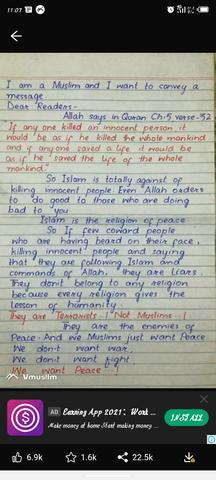 11:07
I am a Muslim and I want to convey a
message.
Dear Readers-
Allah says in Quran Ch:5, verse-32
"If any one killed an innocent person it
would be as if he killed the whole mankind
and if anyone saved a life it would be
as if he saved the life of the whole
mankind."
So Islam is totally against of
killing innocent people Even "Allah orders
to do good to those who are doing
bad to you
Islam is the religion of peace
So If few coward people
who are having beard on their face,
killing innocent people and saying
that they are following Islam and
commands of Allah, they are Liars.
They don't belong to any religion
because every religion gives the
Lesson of humanity.
They are Terrorists..! Not Muslims..!
They are the enemies of
Peace. And we Muslims just want Peace
We don't want war.
We don't want fight
We want Peace..!
Vmuslim
AD Earning App 2021: Work ...
Make money at home :Start making money ...
INSTALL
6.9k
1.6k
22.5k